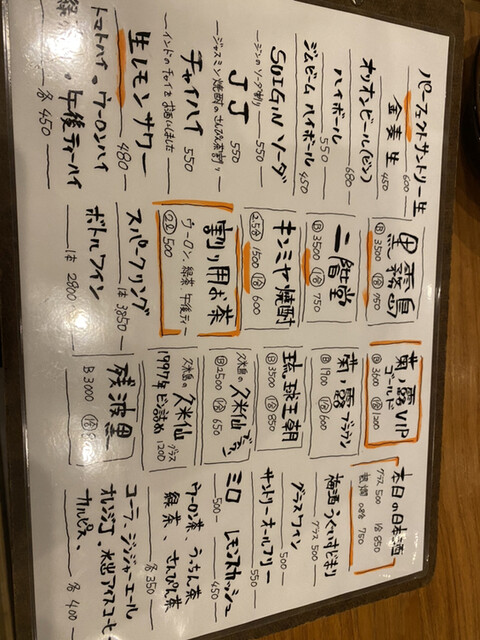 パーフェクトサントリー生 600
金麦 生 450
オリオンビール(ビン) 680
ハイボール 550
ジムビーム ハイボール 450
SUIGIN ソーダ
〜ジンのソーダ割り〜 550
JJ 550
〜ジャスミン焼酎のさんぴん茶割り〜
チャイハイ 550
〜インドのチャイをお酒にしました〜
生レモンサワー 480
トマトハイ・ウーロンハイ
午後ティーハイ
各 450
黒霧島
B 3500 1合 950
二階堂
B 3500 1合 750
キンミヤ焼酎
2.5合 1500 1合 600
割り用お茶
ウーロン、緑茶、午後ティー
2ℓ 500
スパークリング
1本 3850
ボトルワイン
1本 2800
菊ノ露VIP
ゴールド
B 3600 1合 1200
菊ノ露ブラウン
B 1900 1合 600
琉球王朝
B 3500 1合 850
久米島の久米仙
B 2500 1合 650
久米島の久米仙
1997年 グラス 1200
残波黒
B 3000 1合
本日の日本酒
グラス 500 1合 850
熱燗 750
梅酒うぐいすどまり
グラス 500
グラスワイン 500
サントリーオールフリー 550
ミロ レモンスカッシュ
500 450
ウーロン茶、うっちん茶
緑茶、さんぴん茶
各 350
コーラ、ジンジャーエール
オレンジJ・水出アイスコーヒ
カルピス、
各 400